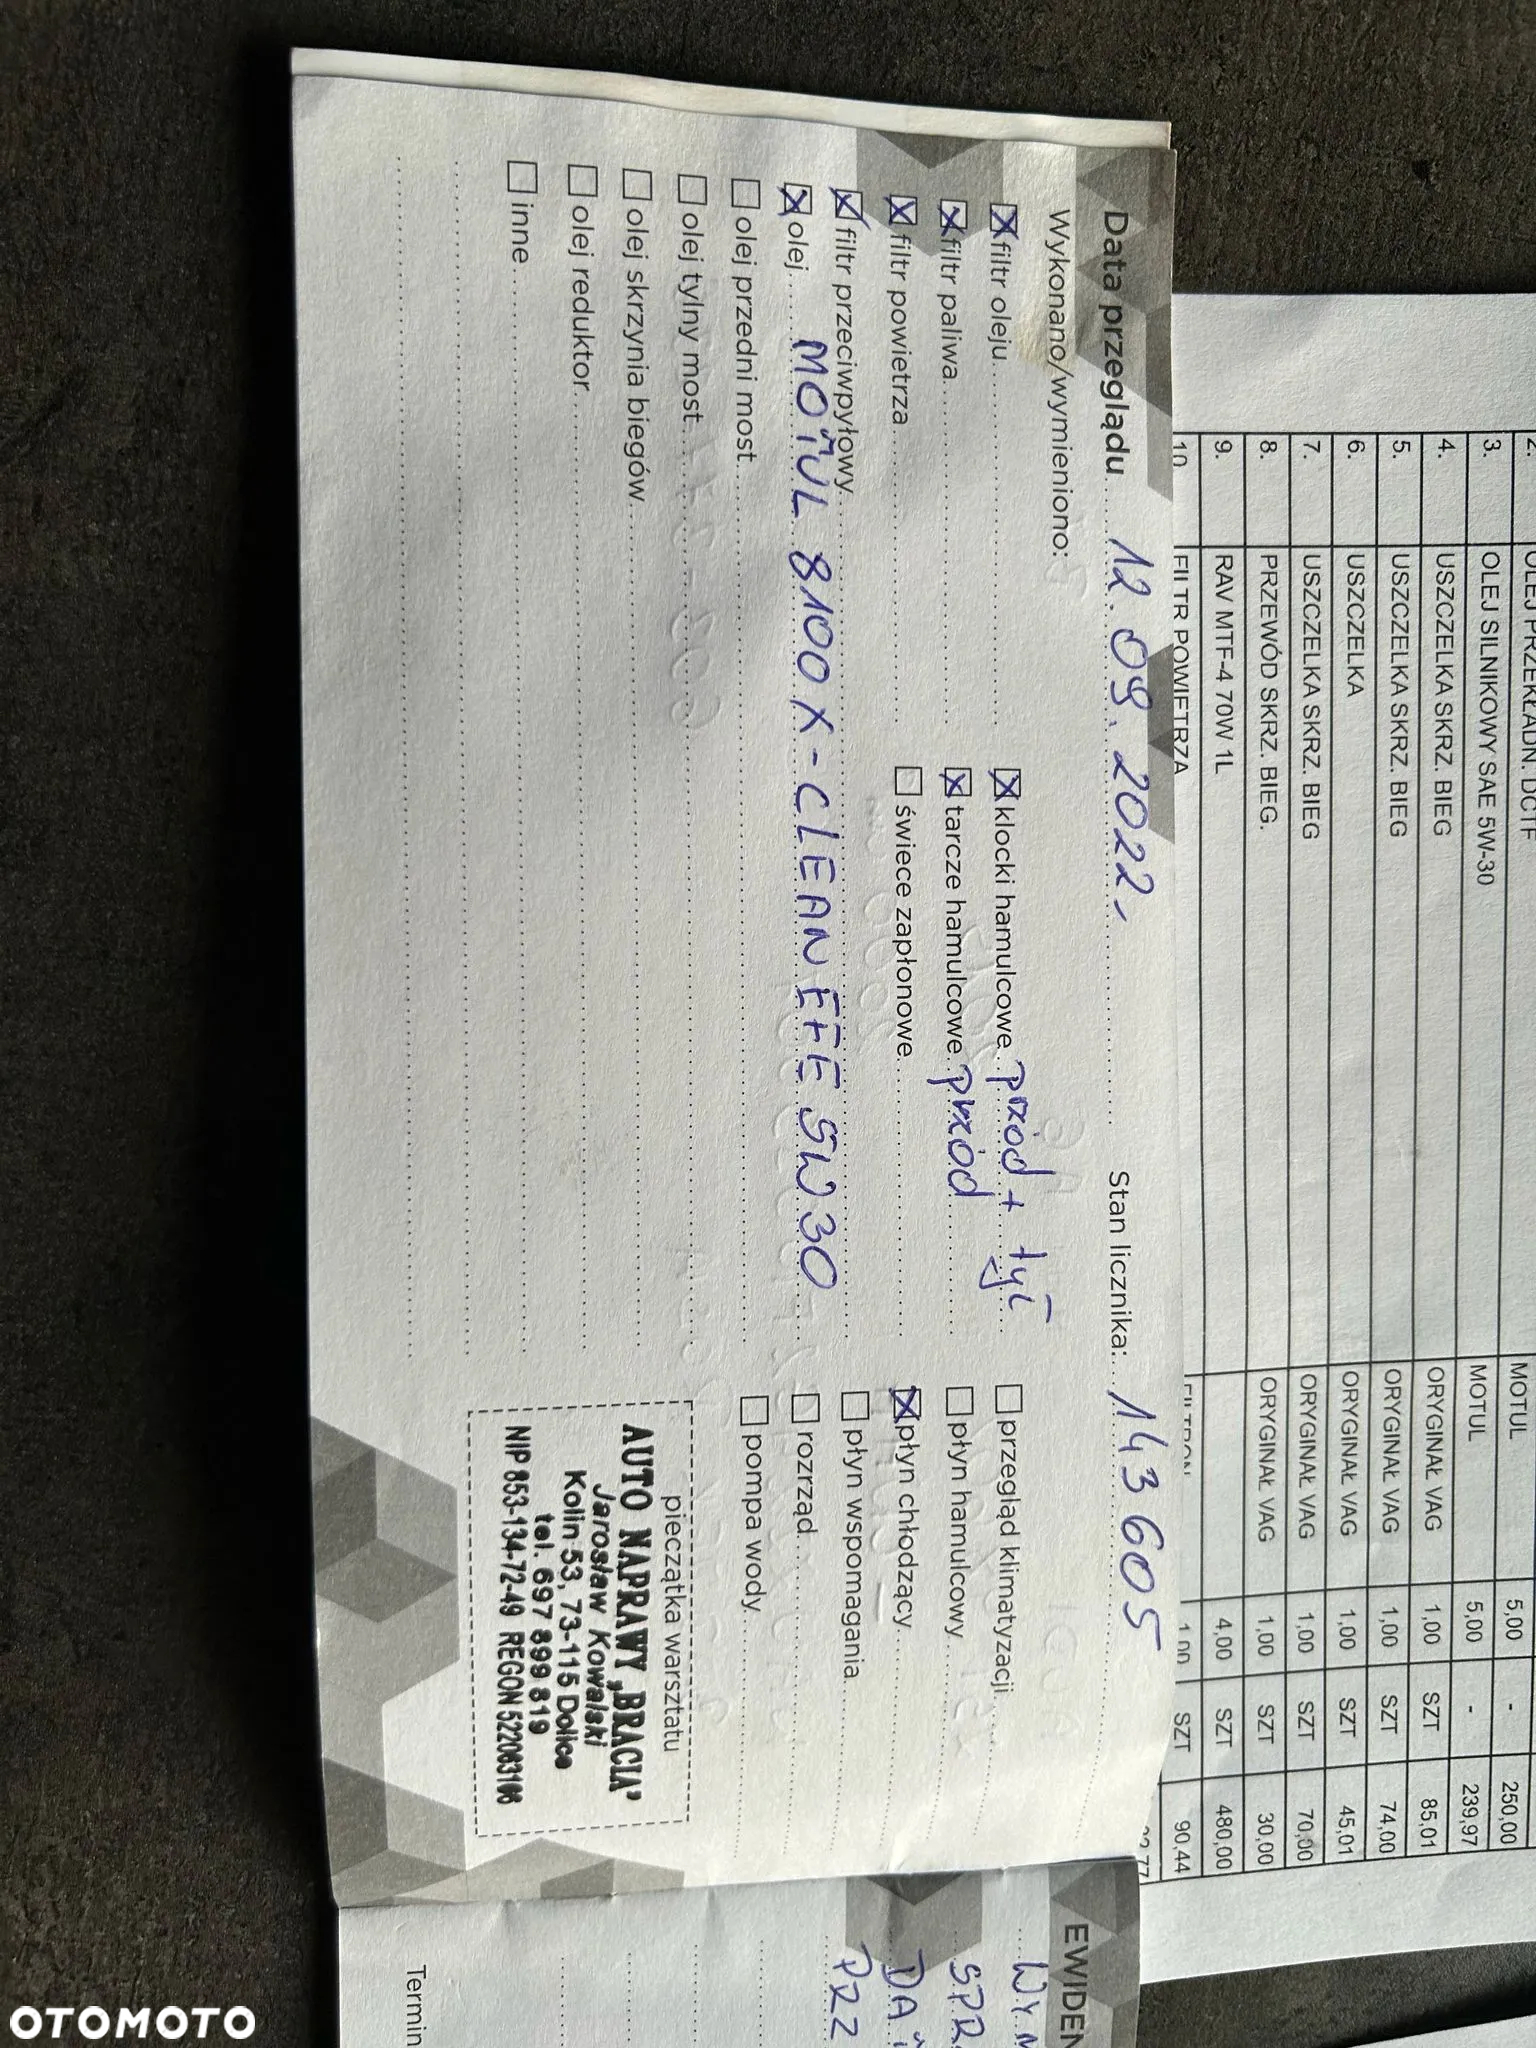 Data przeglądu 12.09.2022. Stan licznika: 143605
Wykonano/wymieniono:
☒ filtr oleju
☒ filtr paliwa
☒ filtr powietrza
☒ filtr przeciwpyłowy
☒ olej MOTUL 8100 X-CLEAN EFE 5W30
☐ olej przedni most
☐ olej tylny most
☐ olej skrzynia biegów
☐ olej reduktor
☐ inne
☒ klocki hamulcowe przód + tył
☒ tarcze hamulcowe przód
☐ świece zapłonowe
☐ przegląd klimatyzacji
☐ płyn hamulcowy
☒ płyn chłodzący
☐ płyn wspomagania
☐ rozrząd
☐ pompa wody
pieczątka warsztatu
AUTO NAPRAWY „BRACIA”
Jarosław Kowalski
Kolin 53, 73-115 Dolice
tel. 697 899 819
NIP 853-134-72-49 REGON
2. OLEJ PRZEKŁADN. DCTF MOTUL 5,00 - 250,00
3. OLEJ SILNIKOWY SAE 5W-30 MOTUL 5,00 - 239,97
4. USZCZELKA SKRZ. BIEG ORYGINAŁ VAG 1,00 SZT 85,01
5. USZCZELKA SKRZ. BIEG ORYGINAŁ VAG 1,00 SZT 74,00
6. USZCZELKA ORYGINAŁ VAG 1,00 SZT 45,01
7. USZCZELKA SKRZ. BIEG ORYGINAŁ VAG 1,00 SZT 70,00
8. PRZEWÓD SKRZ. BIEG. ORYGINAŁ VAG 1,00 SZT 30,00
9. RAV MTF-4 70W 1L 4,00 SZT 480,00
10. FILTR POWIETRZA FILTRON 1,00 SZT 90,44
EWIDEN
WYM
SPR
DA
PRZ
Termin
OTOMOTO